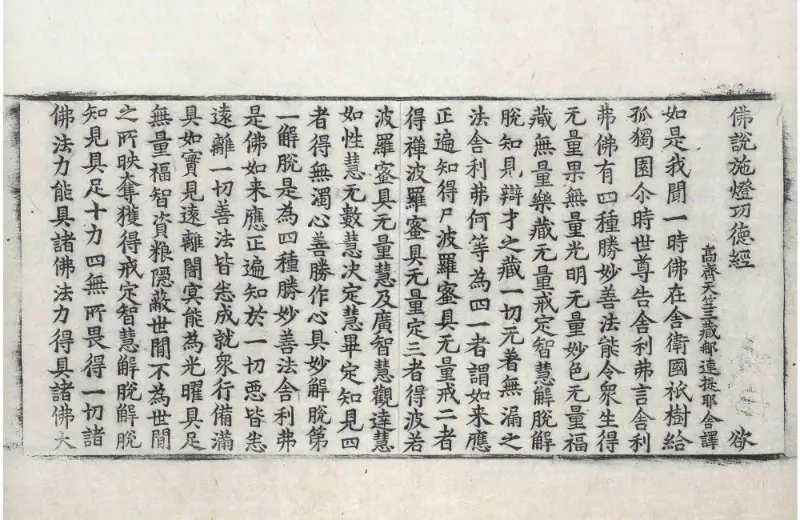 佛說施燈功德經 欲
高齊天竺三藏郍連提耶舍譯
如是我聞一時佛在舍衛國祇樹給
孤獨園尒時世尊告舍利弗言舍利
弗佛有四種勝妙善法能令衆生得
无量果無量光明无量妙色无量福
藏無量樂藏无量戒定智慧解脫解
脫知見辯才之藏一切无著無漏之
法舍利弗何等為四一者謂如来應
正遍知得尸波羅蜜具无量戒二者
得禪波羅蜜具无量定三者得波若
波羅蜜具无量慧及廣智慧觀達慧
如性慧无數慧决定慧畢定知見四
者得無濁心善勝作心具妙解脫第
一解脫是為四種勝妙善法舍利弗
是佛如来應正遍知於一切惡皆悉
遠離一切善法皆悉成就衆行備滿
具如實見遠離闇冥能為光曜具足
無量福智資粮隱蔽世間不為世間
之所映奪獲得戒定智慧解脫解脫
知見具足十力四無所畏得一切諸
佛法力能具諸佛法力得具諸佛大